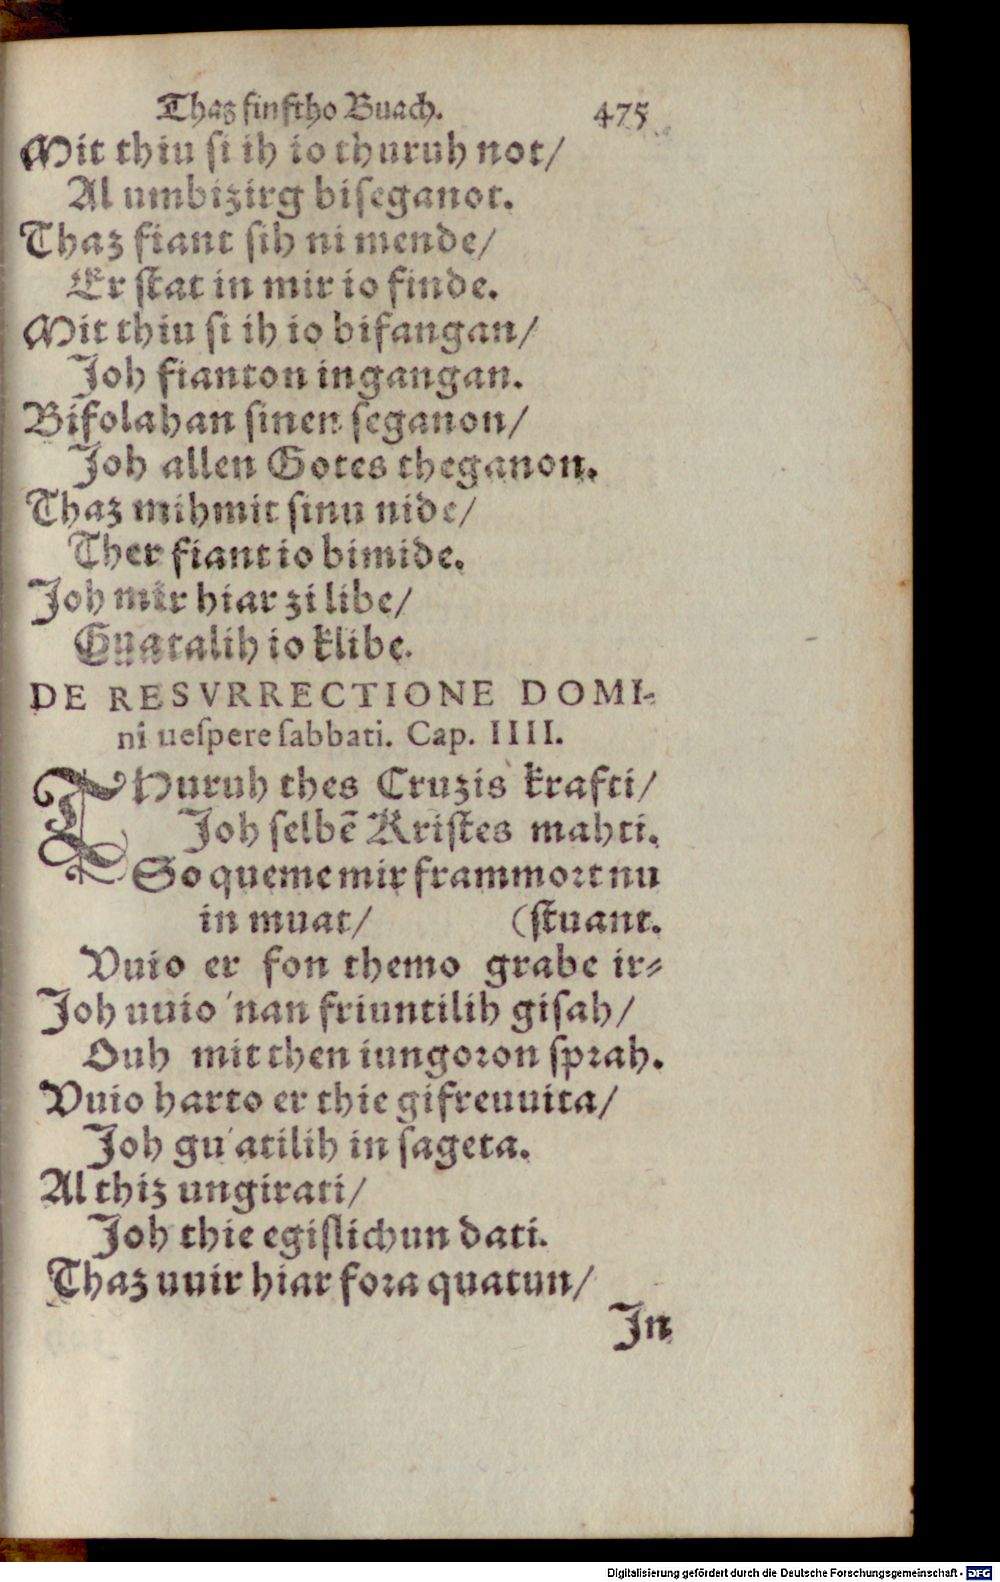 Thaz finftho Buach. 475
Mit thiu si ih io thuruh not/
Al umbizirg biseganot.
Thaz fiant sih ni mende/
Er stat in mir io finde.
Mit thiu si ih io bifangan/
Joh fianton ingangan.
Bifolahan sinen seganon/
Joh allen Gotes theganon.
Thaz mihmit sinu nide/
Ther fiant io bimide.
Joh mir hiar zi libe/
Guatalih io klibe.
DE RESVRRECTIONE DOMI-
ni uespere sabbati. Cap. IIII.
THuruh thes Cruzis krafti/
Joh selbē Kristes mahti.
So queme mir frammort nu
in muat/ (stuant.
Vuio er fon themo grabe ir-
Joh uuio 'nan friuntilih gisah/
Ouh mit then iungoron sprah.
Vuio harto er thie gifreuuita/
Joh gu'atilih in sageta.
Al thiz ungirati/
Joh thie egislichun dati.
Thaz uuir hiar fora quatun/
In
Digitalisierung gefördert durch die Deutsche Forschungsgemeinschaft - DFG